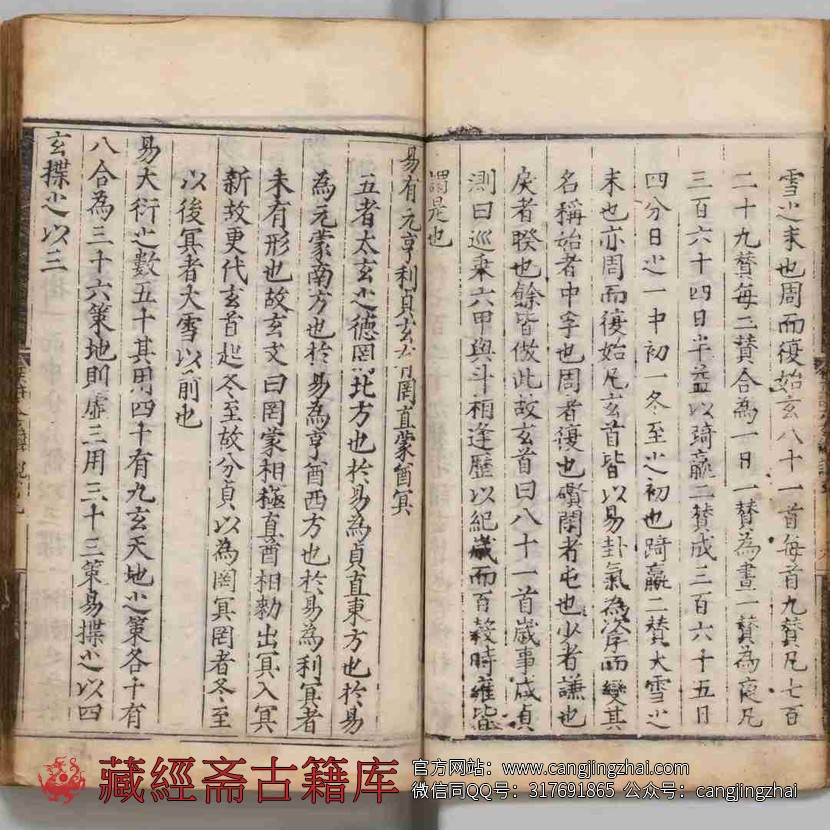 雪之末也周而復始玄八十一首每首九贊凡七百
二十九贊每二贊合為一日一贊為晝一贊為夜凡
三百六十四日半益以踦嬴二贊成三百六十五日
四分日之一中初一冬至之初也踦嬴二贊大雪之
末也亦周而復始凡玄首皆以易卦氣為次序而變其
名稱始者中孚也周者復也礥閑者屯也少者謙也
戾者睽也餘皆倣此故玄首曰八十一首歲事咸貞
測曰巡乘六甲與斗相逢歷以紀歲而百穀時雍皆
謂是也
易有元亨利貞玄有罔直蒙酋冥
五者太玄之德罔北方也於易為貞直東方也於易
為元蒙南方也於易為亨酋西方也於易為利冥者
未有形也故玄文曰罔蒙相極直酋相勑出冥入冥
新故更代玄首起冬至故分貞以為罔冥罔者冬至
以後冥者大雪以前也
易大衍之數五十其用四十有九玄天地之策各十有
八合為三十六策地則虛三用三十三策易揲之以四
玄揲之以三
藏經斋古籍库
官方网站：www.cangjingzhai.com
微信同QQ号：317691865 公众号：cangjingzhai